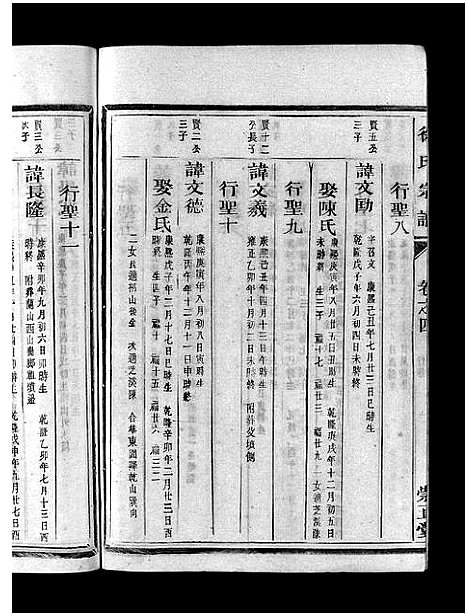 徐氏宗譜
卷之四
行聖八
賢五公
三子
諱文勛
字召文 康熙己丑年七月廿三日巳時生
乾隆戊子年六月初四日未時終
娶陳氏
康熙庚寅年
日未時終 生三子
乾隆庚戌年十二月初五日
福廿九 一女適芝溪陳
行聖九
賢十二
公長子
諱文義
康熙己丑年四月十三日午時生
雍正乙卯年十月初二日未時終 附井文墳側
行聖十
賢二公
三子
諱文德
康熙庚寅年八月初八日寅時生
乾隆 年十二月十一日申時終
娶金氏
康熙戊子年三月十七日巳時生 乾隆辛卯年二月廿三日酉
時終 生四子 福十 福十五 福廿六 福三二
二女長適祁山後金 次適芝溪陳 合葬東園 乾山巽向
行聖十一
賢三公
次子
諱長隆
康熙辛卯年九月初六日卯時生 乾隆乙卯年七月十三日酉
時終
年九月廿七日酉